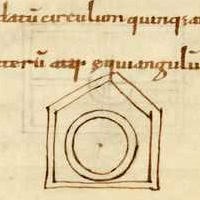 datū circulum quinq;a
terū atq; equiangulū